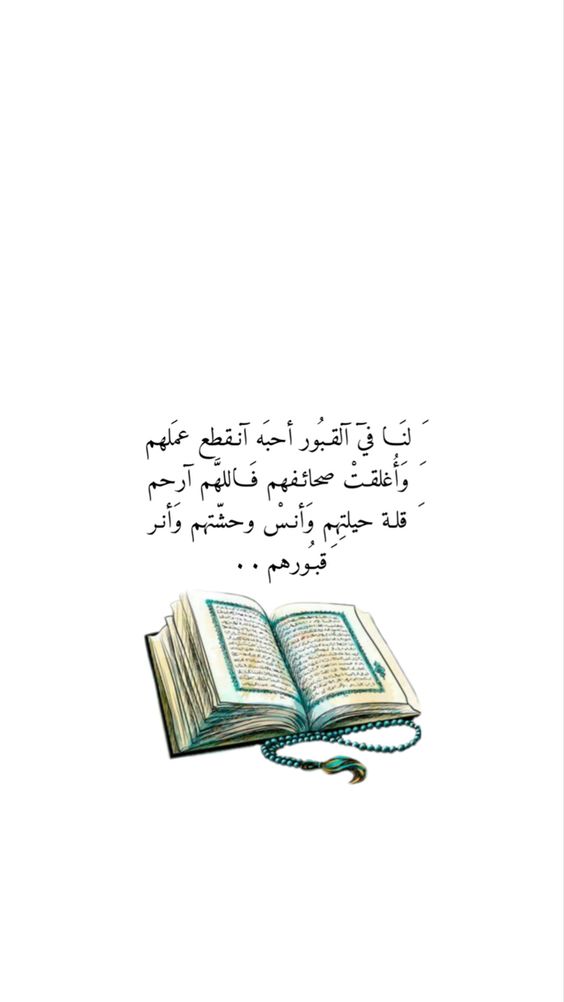 لنَـا فيَ آلقبُور أحبَه آنـقطع عمَلهم
وَأُغلقتْ صحائـفهم فَـاللهَّم آرحم
قلـة حيلتِهم وَأنـسْ وحشّتهم وَأنـر
قبُـورهم . .